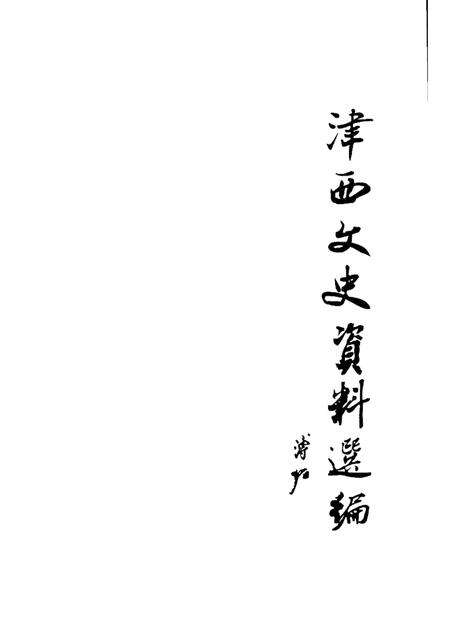 津西文史資料選編